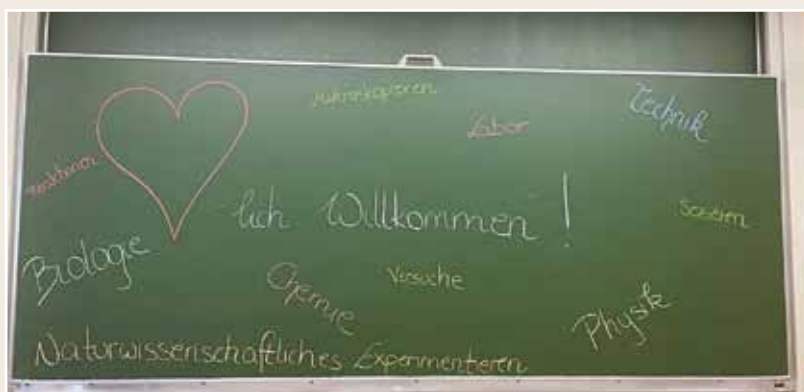 Mikroskopieren
Technik
Labor
Reaktionen
lich Willkommen!
Biologie
Chemie
Versuche
Physik
Naturwissenschaftliches Experimentieren